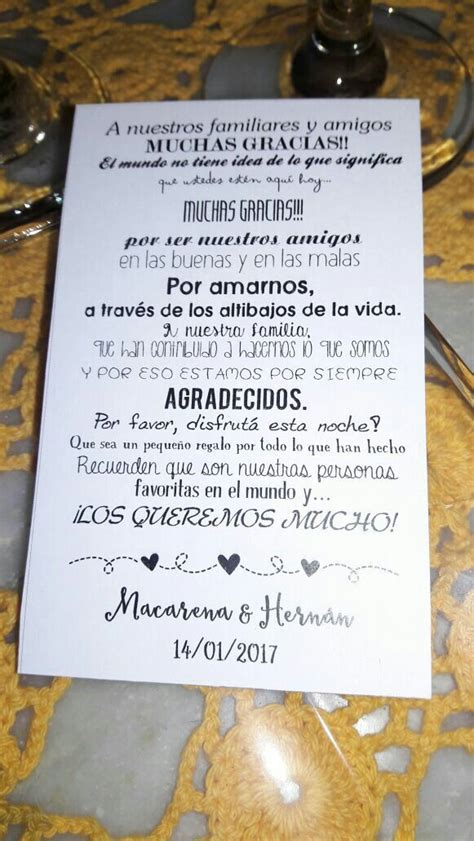 A nuestros familiares y amigos
MUCHAS GRACIAS!!
El mundo no tiene idea de lo que significa
que ustedes estén aquí hoy...
MUCHAS GRACIAS!!!
por ser nuestros amigos
en las buenas y en las malas
Por amarnos,
a través de los altibajos de la vida.
A nuestra familia,
que han contribuido a hacernos lo que somos
Y POR ESO ESTAMOS POR SIEMPRE
AGRADECIDOS.
Por favor, disfrutá esta noche?
Que sea un pequeño regalo por todo lo que han hecho
Recuerden que son nuestras personas
favoritas en el mundo y...
¡LOS QUEREMOS MUCHO!
Macarena & Hernán
14/01/2017